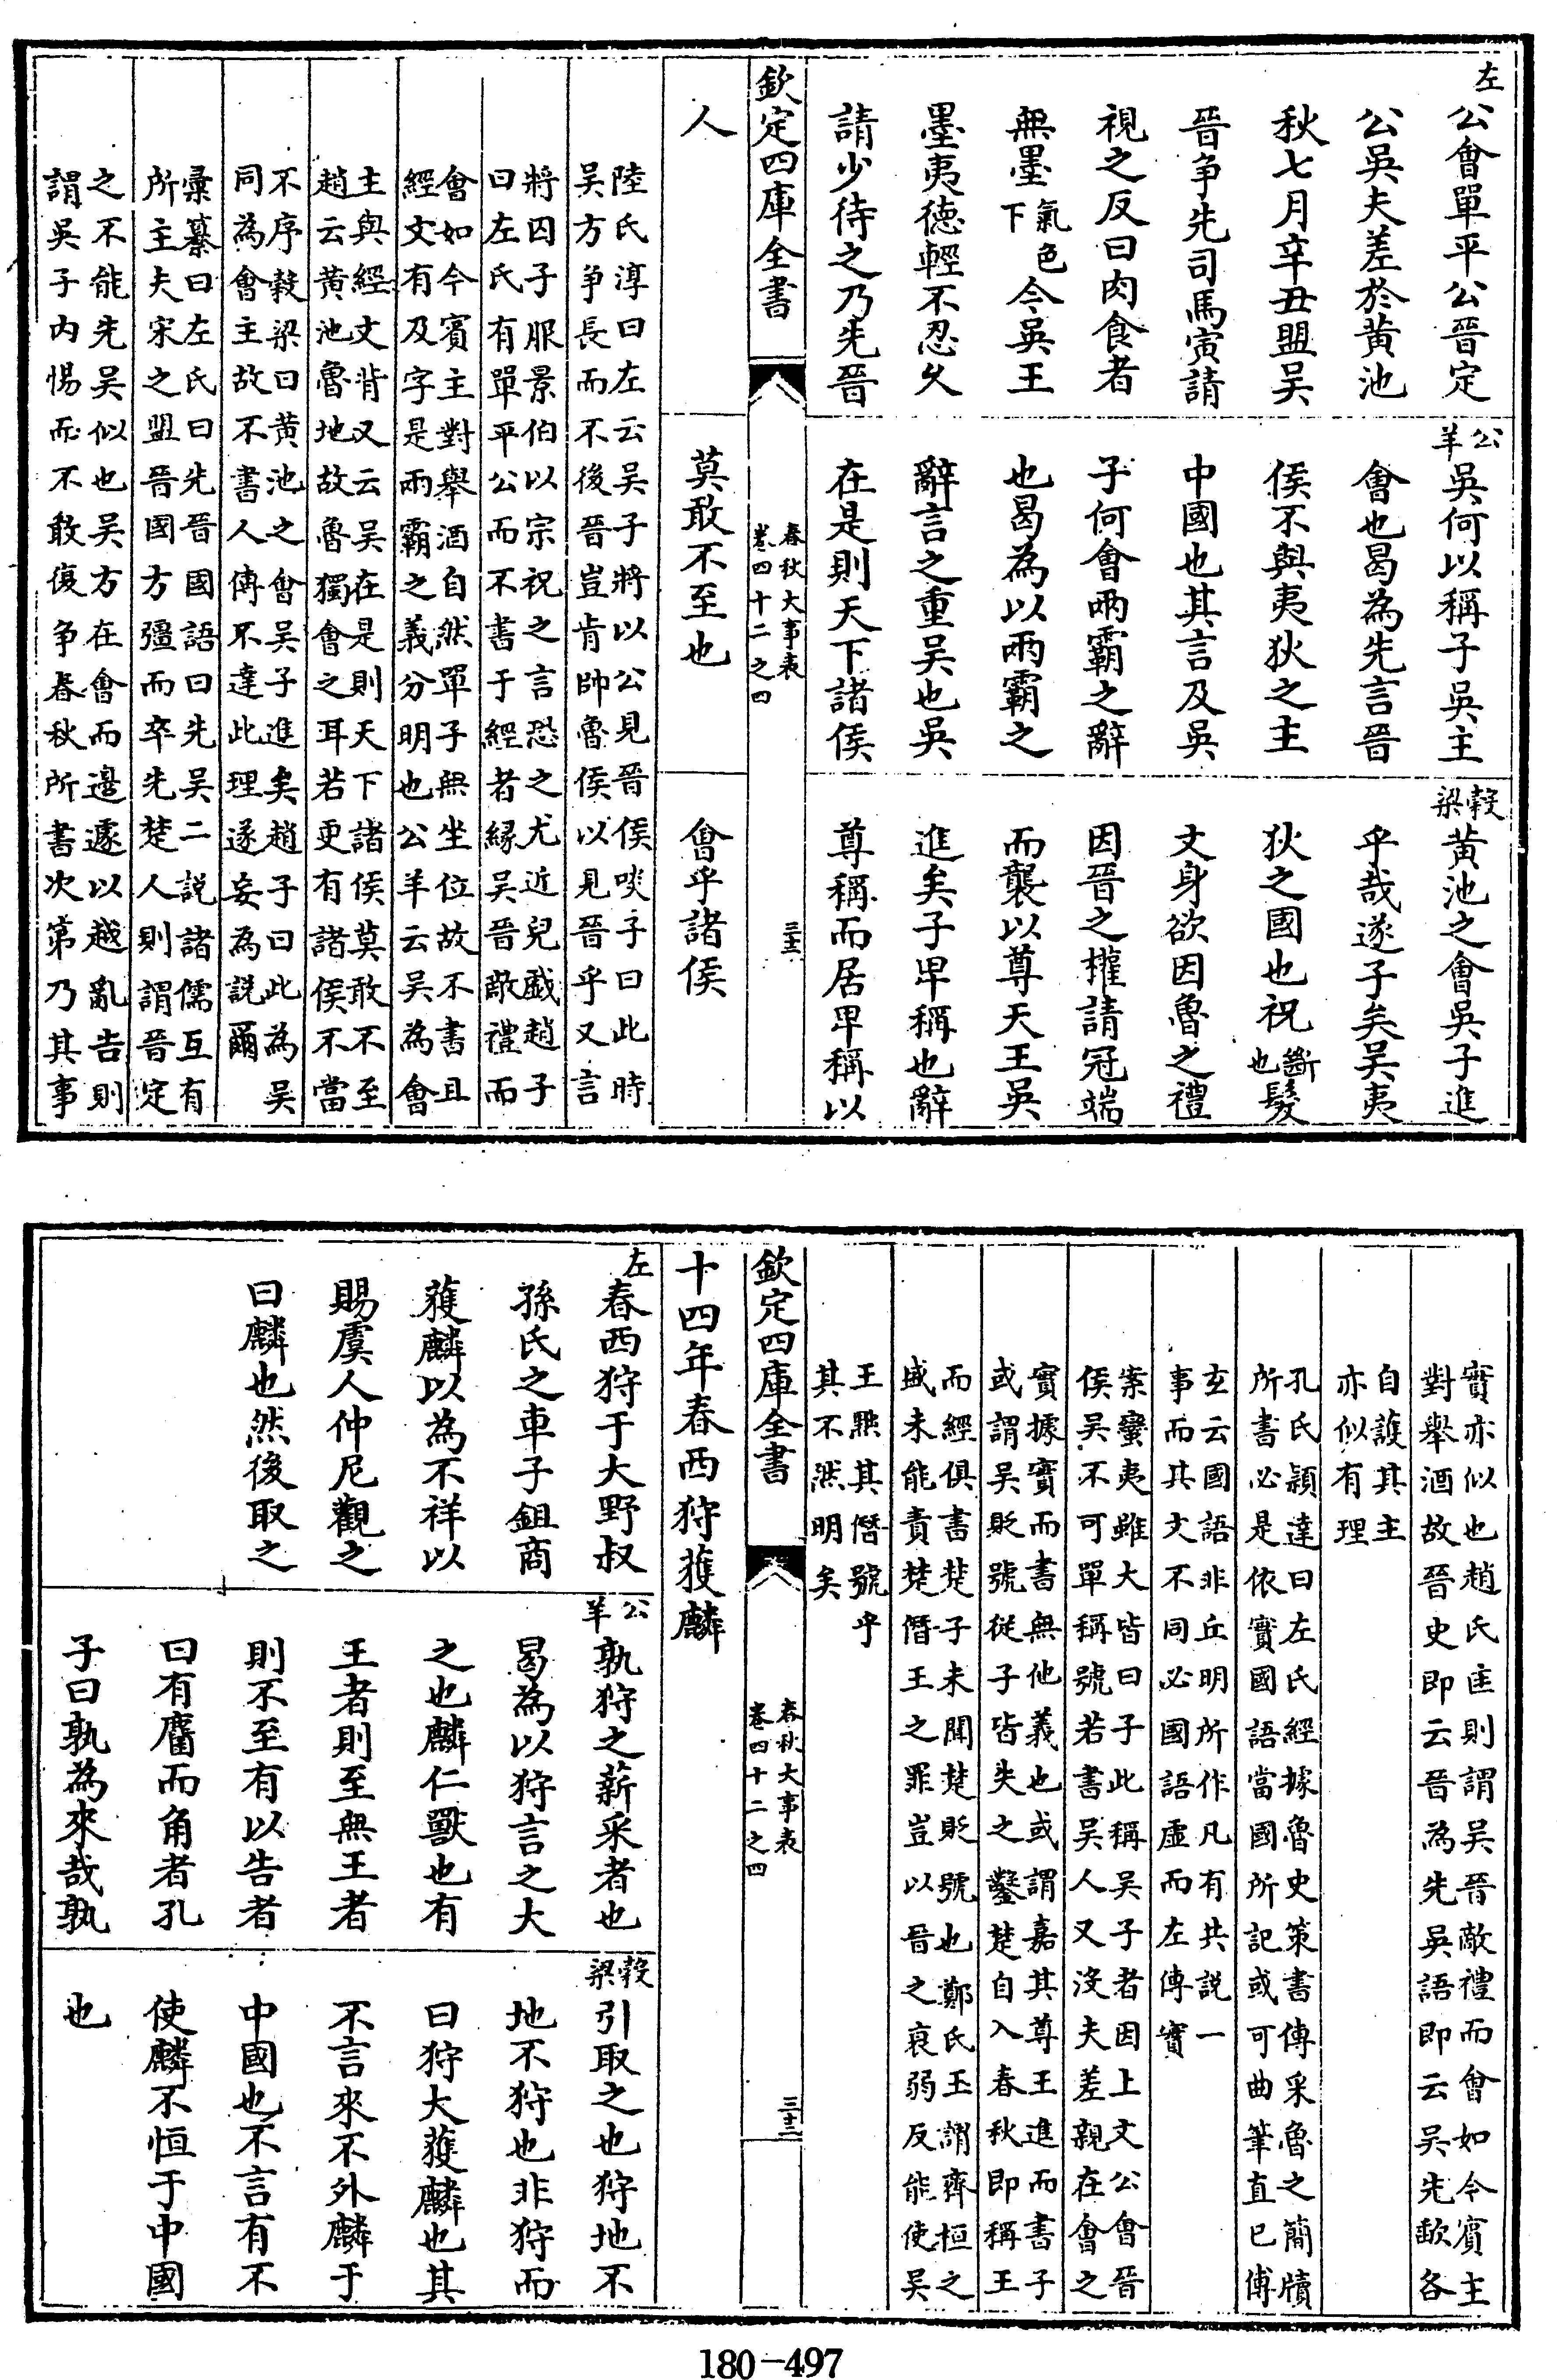 左
公會單平公晉定
公吳夫差於黄池
秋七月辛丑盟吴
晉争先司馬寅請
視之反曰肉食者
無墨氣色下今吳王
墨夷德輕不忍久
請少待之乃先晉
人
公羊
吳何以稱子吳主
會也曷為先言晉
侯不與夷狄之主
中國也其言及吳
子何會兩霸之辭
也曷為以兩霸之
辭言之重吴也吳
在是則天下諸侯
莫敢不至也
穀梁
黄池之會吳子進
乎哉遂子矣吴夷
狄之國也祝斷也髮
文身欲因魯之禮
因晉之權請冠端
而襲以尊天王吴
進矣子卑稱也辭
尊稱而居卑稱以
會乎諸侯
欽定四庫全書
春秋大事表
卷四十二之四
三十二
陸氏淳曰左云吴子將以公見晉侯啖子曰此時
吴方争長而不後晉豈肯帥魯侯以見晉乎又言
將囚子服景伯以宗祝之言恐之尤近兒戲趙子
曰左氏有單平公而不書于經者緣吴晉敵禮而
會如今賓主對舉酒自然單子無坐位故不書且
經文有及字是兩霸之義分明也公羊云吴為會
主與經文背又云吴在是則天下諸侯莫敢不至
趙云黄池魯地故魯獨會之耳若更有諸侯不當
不序穀梁曰黄池之會吴子進矣趙子曰此為吴
同為會主故不書人傳不達此理遂妄為説爾
彙纂曰左氏曰先晉國語曰先吴二説諸儒互有
所主夫宋之盟晉國方彊而卒先楚人則謂晉定
之不能先吴似也吴方在會而邊遽以越亂告則
謂吴子内惕而不敢復争春秋所書次第乃其事
實亦似也趙氏匡則謂吴晉敵禮而會如今賓主
對舉酒故晉史即云晉為先吳語即云吴先歃各
自護其主
亦似有理
孔氏穎達曰左氏經據魯史策書傳采魯之簡牘
所書必是依實國語當國所記或可曲筆直已傅
玄云國語非丘明所作凡有共説一
事而其文不同必國語虛而左傳實
案蠻夷雖大皆曰子此稱吴子者因上文公會晉
侯吴不可單稱號若書吴人又沒夫差親在會之
實據實而書無他義也或謂嘉其尊王進而書子
或謂吴貶號從子皆失之鑿楚自入春秋即稱王
而經俱書楚子未聞楚貶號也鄭氏玉謂齊桓之
盛未能責楚僭王之罪豈以晉之衰弱反能使吴
王黜其僭號乎
其不然明矣
欽定四庫全書
春秋大事表
卷四十二之四
三十三
十四年春西狩獲麟
左
春西狩于大野叔
孫氏之車子鉏商
獲麟以為不祥以
賜虞人仲尼觀之
曰麟也然後取之
公羊
孰狩之薪采者也
曷為以狩言之大
之也麟仁獸也有
王者則至無王者
則不至有以告者
曰有麕而角者孔
子曰孰為來哉孰
穀梁
引取之也狩地不
地不狩也非狩而
曰狩大獲麟也其
不言來不外麟于
中國也不言有不
使麟不恒于中國
也
180-497